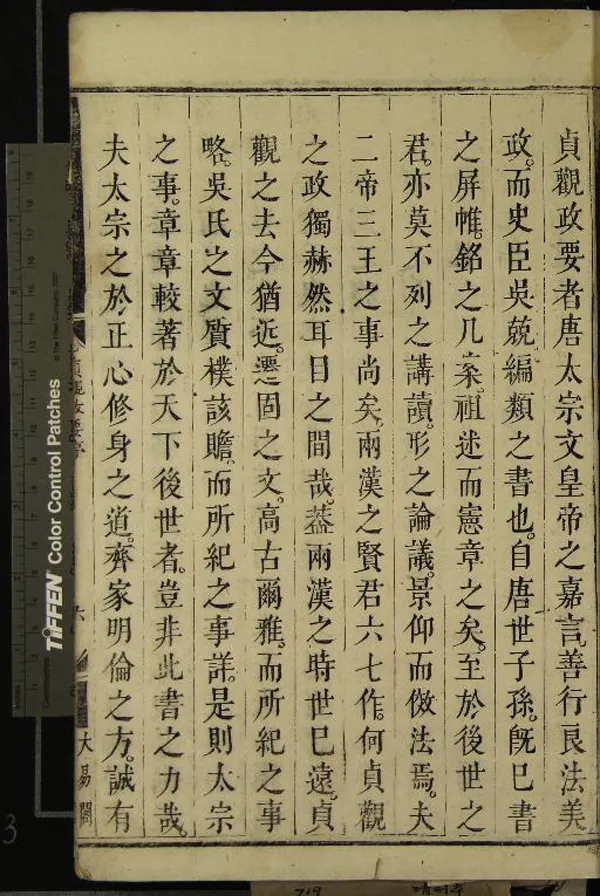 貞觀政要者唐太宗文皇帝之嘉言。善行良法美
政。而史臣吳兢編類之書也。自唐世子孫。旣已書
之屏帷。銘之几案。祖述而憲章之矣。至於後世之
君。亦莫不列之講讀。形之論議。景仰而傚法焉。夫
二帝三王之事尚矣。兩漢之賢君六七作。何貞觀
之政獨赫然耳目之間哉。葢兩漢之時世已遠。貞
觀之去今猶近。遷固之文。高古爾雅。而所紀之事
略。吳氏之文質樸該贍。而所紀之事詳。是則太宗
之事。章章較著於天下後世者。豈非此書之力哉。
夫太宗之於正心修身之道。齊家明倫之方。誠有
六
大易閣
TIFFEN Color Control Patches
3